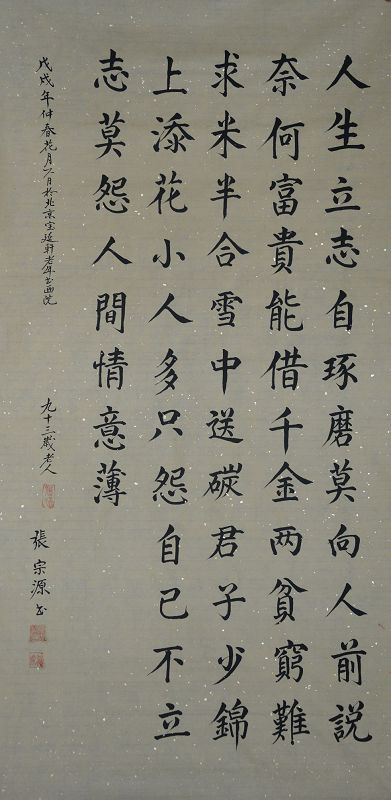 人生立志自琢磨莫向人前説
奈何富貴能借千金两貧窮難
求米半合雪中送碳君子少錦
上添花小人多只怨自己不立
志莫怨人間情意薄
戊戌年仲春花月 日於北京 延軒老年书画院
九十三歲老人
張宗源书